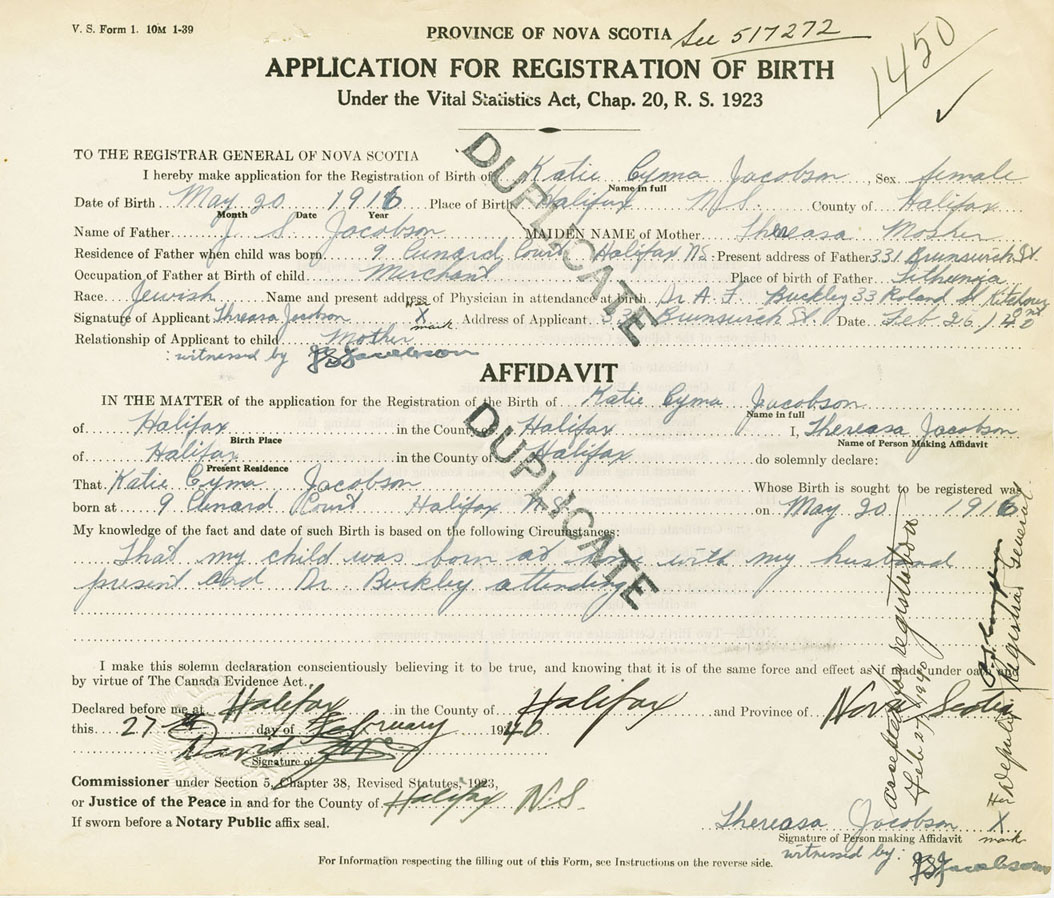 V. S. Form 1. 10M 1-39
PROVINCE OF NOVA SCOTIA See 517272
1450
APPLICATION FOR REGISTRATION OF BIRTH
Under the Vital Statistics Act, Chap. 20, R. S. 1923
DUPLICATE
TO THE REGISTRAR GENERAL OF NOVA SCOTIA
I hereby make application for the Registration of Birth of Katie Cyma Jacobson, Sex female
Name in full
Date of Birth May 20 1916 Place of Birth Halifax N.S. County of Halifax
Month Date Year
Name of Father J S Jacobson MAIDEN NAME of Mother Thereasa Mosher
Residence of Father when child was born 9 Cunard Court Halifax NS. Present address of Father 331 Brunswick St.
Occupation of Father at Birth of child Merchant Place of birth of Father Lithunia
Race Jewish Name and present address of Physician in attendance at birth Dr A. F. Buckley 33 Roland St Kitchener Ont
Signature of Applicant Threasa Jacobson Her X mark Address of Applicant Brunswick St. Date Feb. 26/40
Relationship of Applicant to child Mother
: witnessed by JSJacobson
AFFIDAVIT
IN THE MATTER of the application for the Registration of the Birth of Katie Cyma Jacobson
Name in full
of Halifax in the County of Halifax I, Thereasa Jacobson
Birth Place Name of Person Making Affidavit
of Halifax in the County of Halifax do solemnly declare:
Present Residence
DUPLICATE
That Katie Cyma Jacobson Whose Birth is sought to be registered was
born at 9 Cunard Court Halifax N.S. on May 20 1916
My knowledge of the fact and date of such Birth is based on the following Circumstances:
That my child was born at home with my husband
present and Dr. Buckley attending
I make this solemn declaration conscientiously believing it to be true, and knowing that it is of the same force and effect as if made under oath and
by virtue of The Canada Evidence Act.
Declared before me at Halifax in the County of Halifax and Province of Nova Scotia
this 27th day of February 1940
David
Signature of
Commissioner under Section 5, Chapter 38, Revised Statutes, 1923,
or Justice of the Peace in and for the County of Halifax N.S.
If sworn before a Notary Public affix seal.
Thereasa Jacobson Her X mark
Signature of Person making Affidavit
witnessed by: JSJacobson
For Information respecting the filling out of this Form, see Instructions on the reverse side.
accepted for registration
Feb 27/1940
Deputy Registrar General